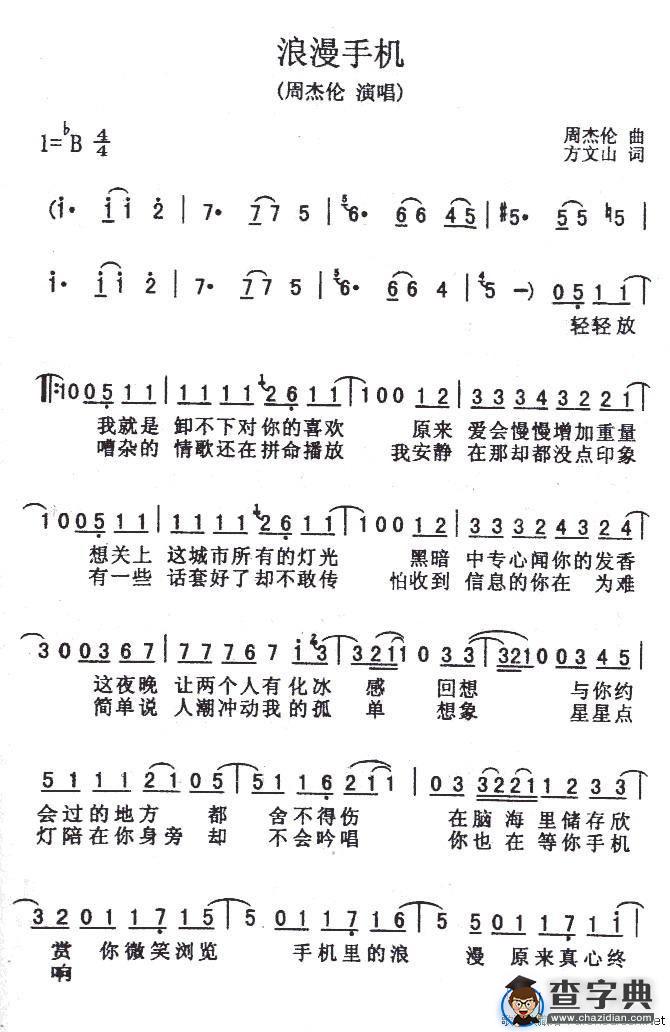 浪漫手机
(周杰伦 演唱)
1=♭B 4/4
周杰伦 曲
方文山 词
(i· i i 2 | 7· 7 7 5 | 6· 6 6 4 5 | #5· 5 5 ♮5 |
i· i i 2 | 7· 7 7 5 | 6· 6 6 4 | 5 －) 0 5 1 1 |
轻轻放
‖: 1 0 0 5 1 1 | 1 1 1 1 2 6 1 1 | 1 0 0 1 2 | 3 3 3 4 3 2 2 1 |
我就是 卸不下对你的喜欢 原来 爱会慢慢增加重量
嘈杂的 情歌还在拼命播放 我安静 在那却都没点印象
1 0 0 5 1 1 | 1 1 1 1 2 6 1 1 | 1 0 0 1 2 | 3 3 3 2 4 3 2 4 |
想关上 这城市所有的灯光 黑暗 中专心闻你的发香
有一些 话套好了却不敢传 怕收到 信息的你在 为难
3 0 0 3 6 7 | 7 7 7 6 7 i 3 | 3 2 1 1 0 3 3 | 3 2 1 0 0 3 4 5 |
这夜晚 让两个人有化冰 感 回想 与你约
简单说 人潮冲动我的孤 单 想象 星星点
5 1 1 1 2 1 0 5 | 5 1 1 6 2 1 1 | 0 3 3 2 2 1 1 2 3 3 |
会过的地方 都 舍不得伤 在脑 海里储存欣
灯陪在你身旁 却 不会吟唱 你也在 等你手机
3 2 0 1 1 7 1 5 | 5 0 1 1 7 1 6 | 5 0 5 0 1 1 7 1 i |
赏 你微笑浏览 手机里的浪 漫 原来真心终
响
查字典
www.chazidian.com